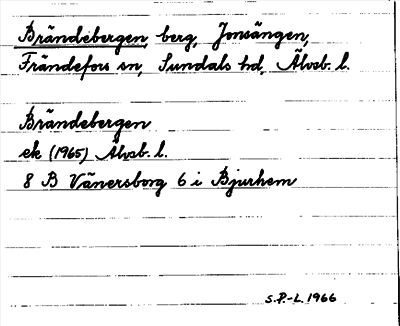 Brändebergen, berg, Jonsängen,
Frändefors sn, Sundals hd, Älvsb. l.
Brändebergen
ek (1965) Älvsb. l.
8 B Vänersborg 6 i Bjurhem
S.P.-L. 1966